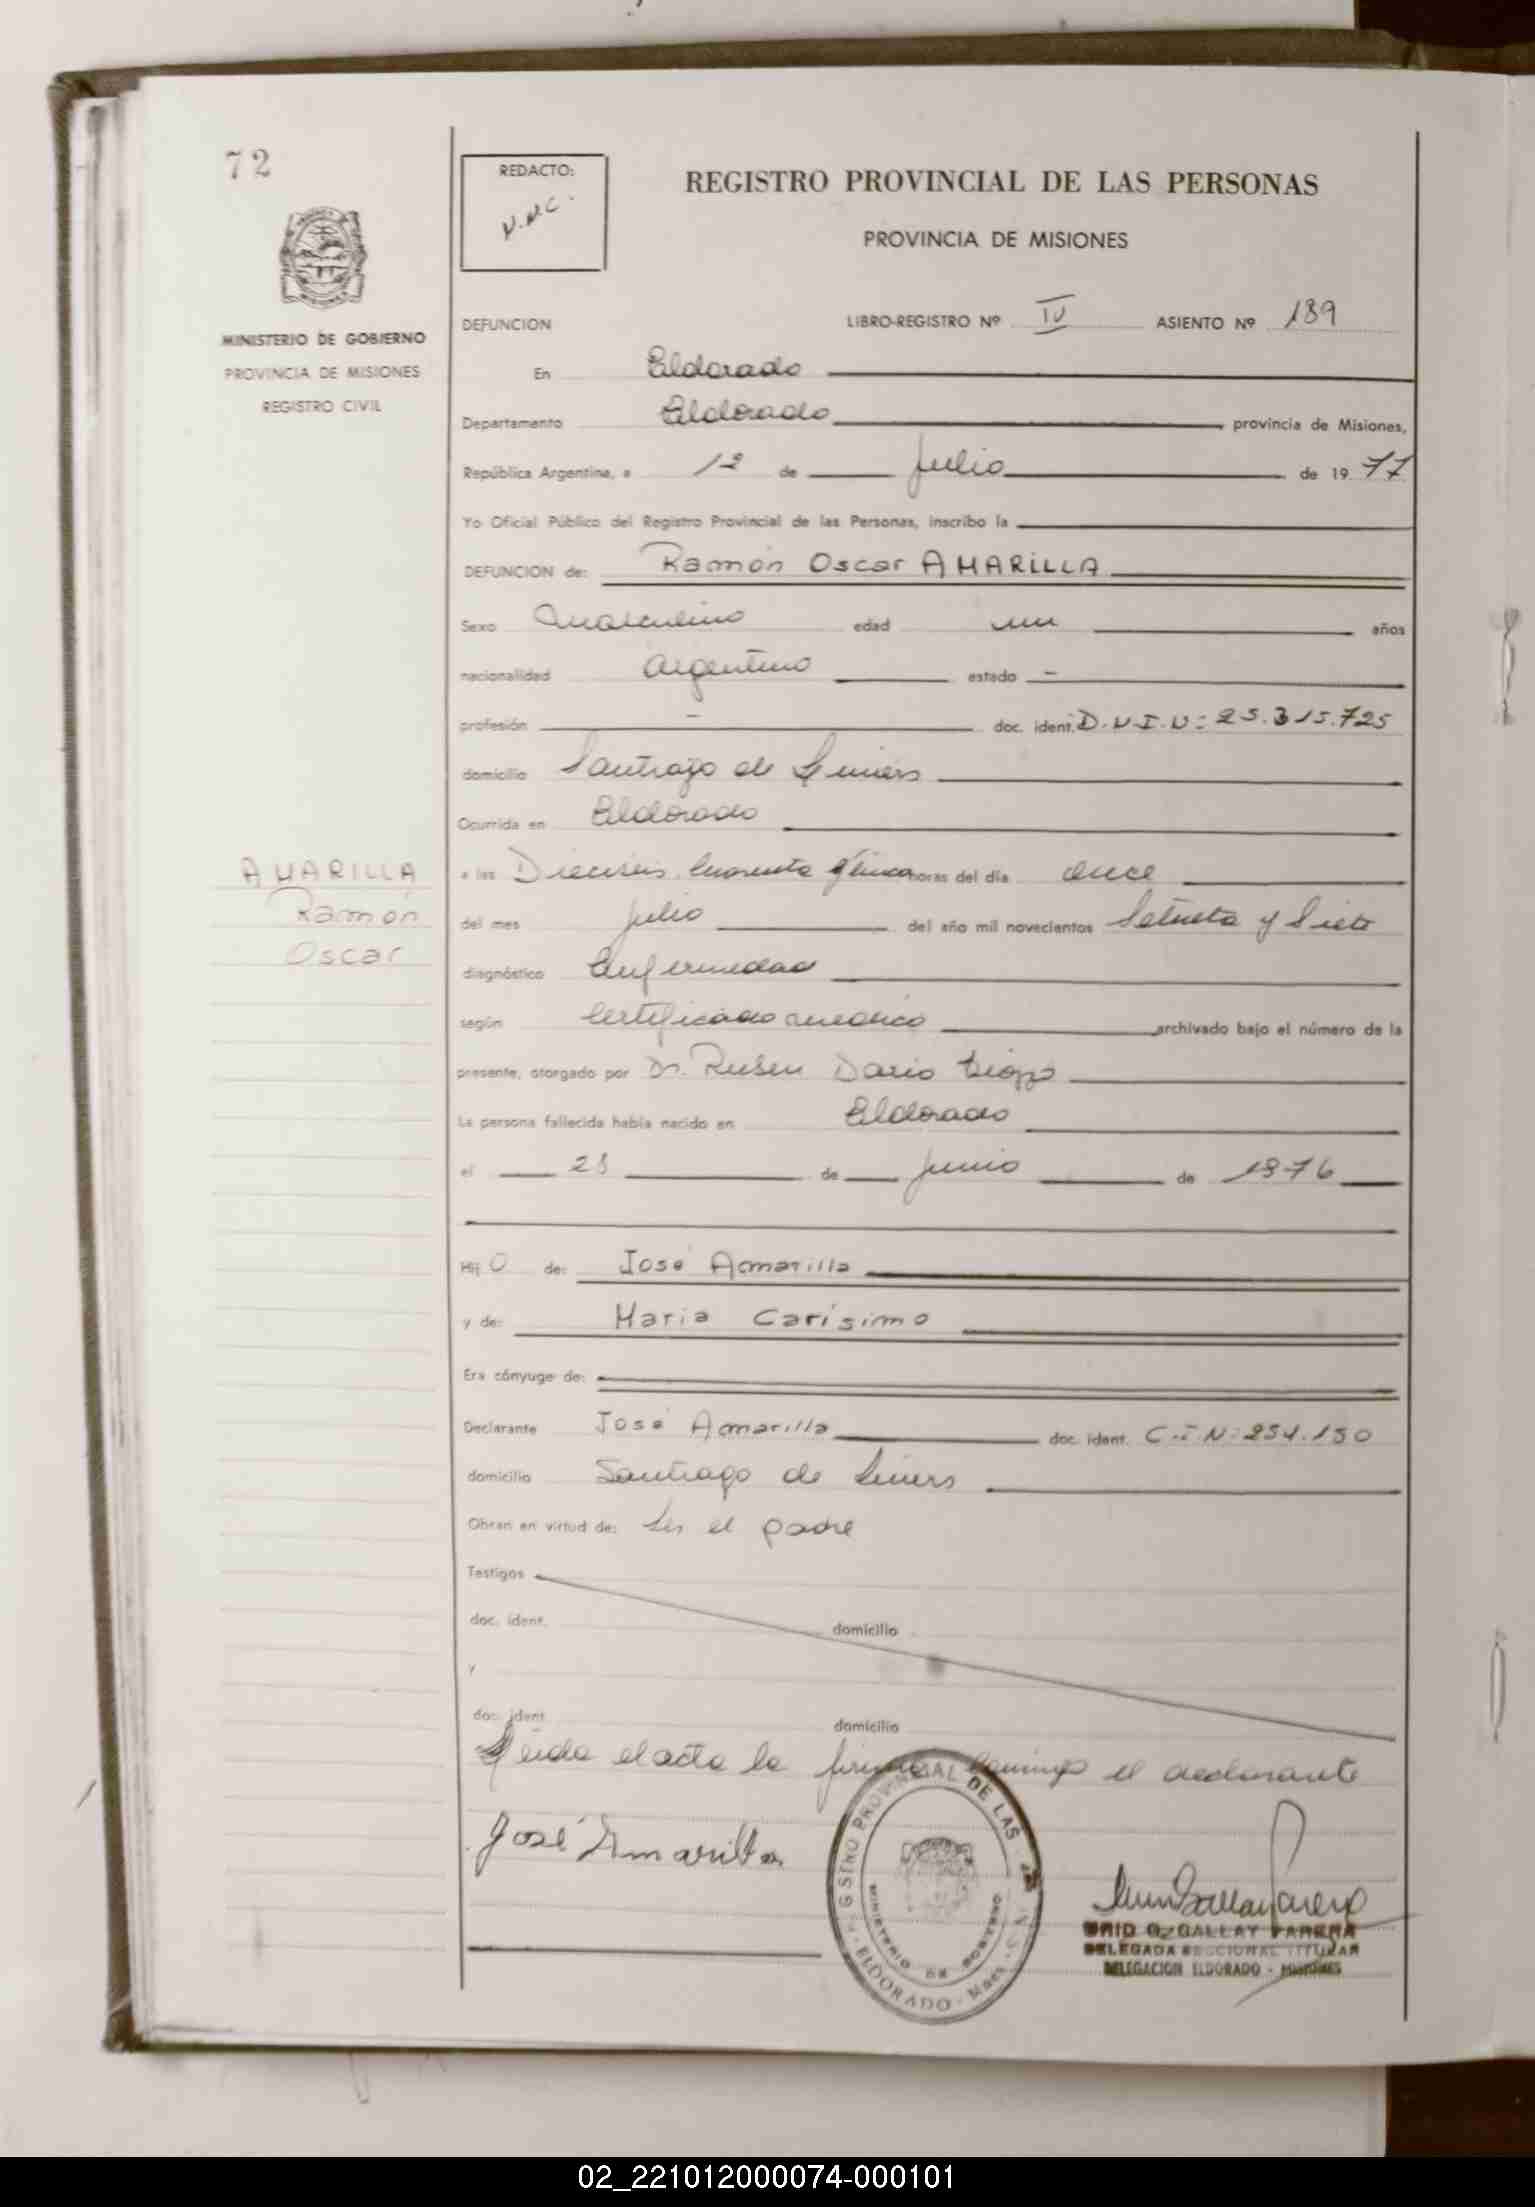 72
REDACTO:
REGISTRO PROVINCIAL DE LAS PERSONAS
PROVINCIA DE MISIONES
MINISTERIO DE GOBIERNO
PROVINCIA DE MISIONES
REGISTRO CIVIL
DEFUNCION LIBRO-REGISTRO Nº IV ASIENTO Nº 189
En Eldorado
Departamento Eldorado provincia de Misiones,
República Argentina, a 12 de Julio de 1977
Yo Oficial Público del Registro Provincial de las Personas, inscribo la
DEFUNCION de: Ramón Oscar AMARILLA
Sexo Masculino edad un años
nacionalidad Argentino estado -
profesión - doc. ident. D.N.I.N: 25.315.725
domicilio Santiago de Liniers
Ocurrida en Eldorado
AMARILLA
Ramón
Oscar
a las Dieciseis Cuarenta y Cinco horas del día once
del mes julio del año mil novecientos Setenta y Siete
diagnóstico Enfermedad
según Certificado medico archivado bajo el número de la
presente, otorgado por Dr. Ruben Dario
La persona fallecida había nacido en Eldorado
el 28 de junio de 1976
Hijo de: José Amarilla
y de: Maria Carísimo
Era cónyuge de:
Declarante José Amarilla doc. ident. C.I.N: 254.150
domicilio Santiago de Liniers
Obran en virtud de: Ser el padre
Testigos
doc. ident. domicilio
y
doc. ident. domicilio
Leida el acta la firma conmigo el declarante
José Amarilla
REGISTRO PROVINCIAL DE LAS
MINISTERIO DE GOBIERNO
ELDORADO - Mnes.
GALLAY PARERA
DELEGADA SECCIONAL TITULAR
DELEGACION ELDORADO - MISIONES
02_221012000074-000101